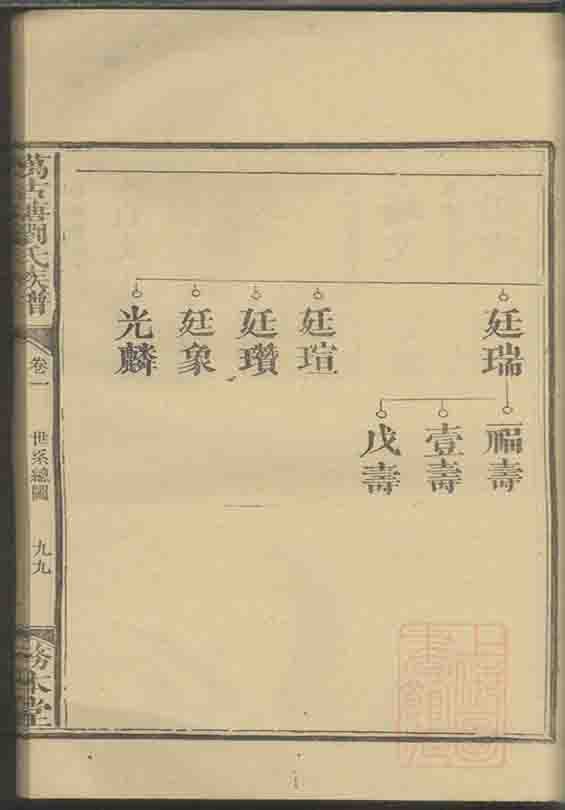 廷瑞
廷瑄
廷瓚
廷象
光麟
福壽
壹壽
戊壽
萬古塘劉氏族譜
卷一
世系總圖
九九
務本堂
上海圖書館藏